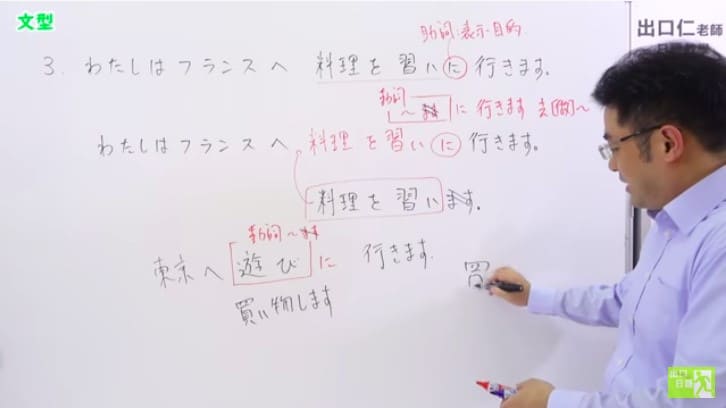 文型
出口仁老師
助詞:表示目的
3. わたしはフランスへ 料理を習いに行きます.
動詞
～ます に 行きます 去[做]～
わたしはフランスへ 料理を習いに行きます.
料理を習います.
動詞～ます
東京へ 遊びに 行きます.
買い物します
買
出口
日語